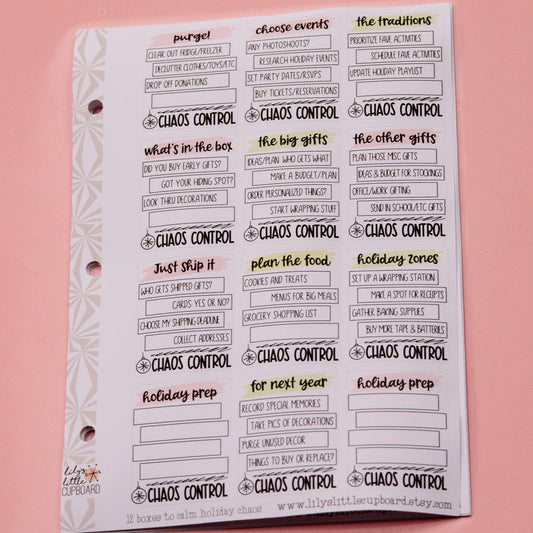 purge!
CLEAR OUT FRIDGE/FREEZER
DECLUTTER CLOTHES/TOYS/ETC
DROP OFF DONATIONS
CHAOS CONTROL
choose events
ANY PHOTOSHOOTS?
RESEARCH HOLIDAY EVENTS
SET PARTY DATES/RSVPS
BUY TICKETS/RESERVATIONS
CHAOS CONTROL
the traditions
PRIORITIZE FAVE ACTIVITIES
SCHEDULE FAVE ACTIVITIES
UPDATE HOLIDAY PLAYLIST
CHAOS CONTROL
what's in the box
DID YOU BUY EARLY GIFTS?
GOT YOUR HIDING SPOT?
LOOK THRU DECORATIONS
CHAOS CONTROL
the big gifts
IDEAS/PLAN WHO GETS WHAT
MAKE A BUDGET/PLAN
ORDER PERSONALIZED THINGS?
START WRAPPING STUFF
CHAOS CONTROL
the other gifts
PLAN THOSE MISC GIFTS
IDEAS & BUDGET FOR STOCKINGS
OFFICE/WORK GIFTING
SEND IN SCHOOL/ETC GIFTS
CHAOS CONTROL
Just ship it
WHO GETS SHIPPED GIFTS?
CARDS YES OR NO?
CHOOSE MY SHIPPING DEADLINE
COLLECT ADDRESSES
CHAOS CONTROL
plan the food
COOKIES AND TREATS
MENUS FOR BIG MEALS
GROCERY SHOPPING LIST
CHAOS CONTROL
holiday zones
SET UP A WRAPPING STATION
MAKE A SPOT FOR RECEIPTS
GATHER BAKING SUPPLIES
BUY MORE TAPE & BATTERIES
CHAOS CONTROL
holiday prep
CHAOS CONTROL
for next year
RECORD SPECIAL MEMORIES
TAKE PICS OF DECORATIONS
PURGE UNUSED DECOR
THINGS TO BUY OR REPLACE?
CHAOS CONTROL
holiday prep
CHAOS CONTROL
lily's
little
CUPBOARD
12 boxes to calm holiday chaos
www.lilyslittlecupboard.etsy.com